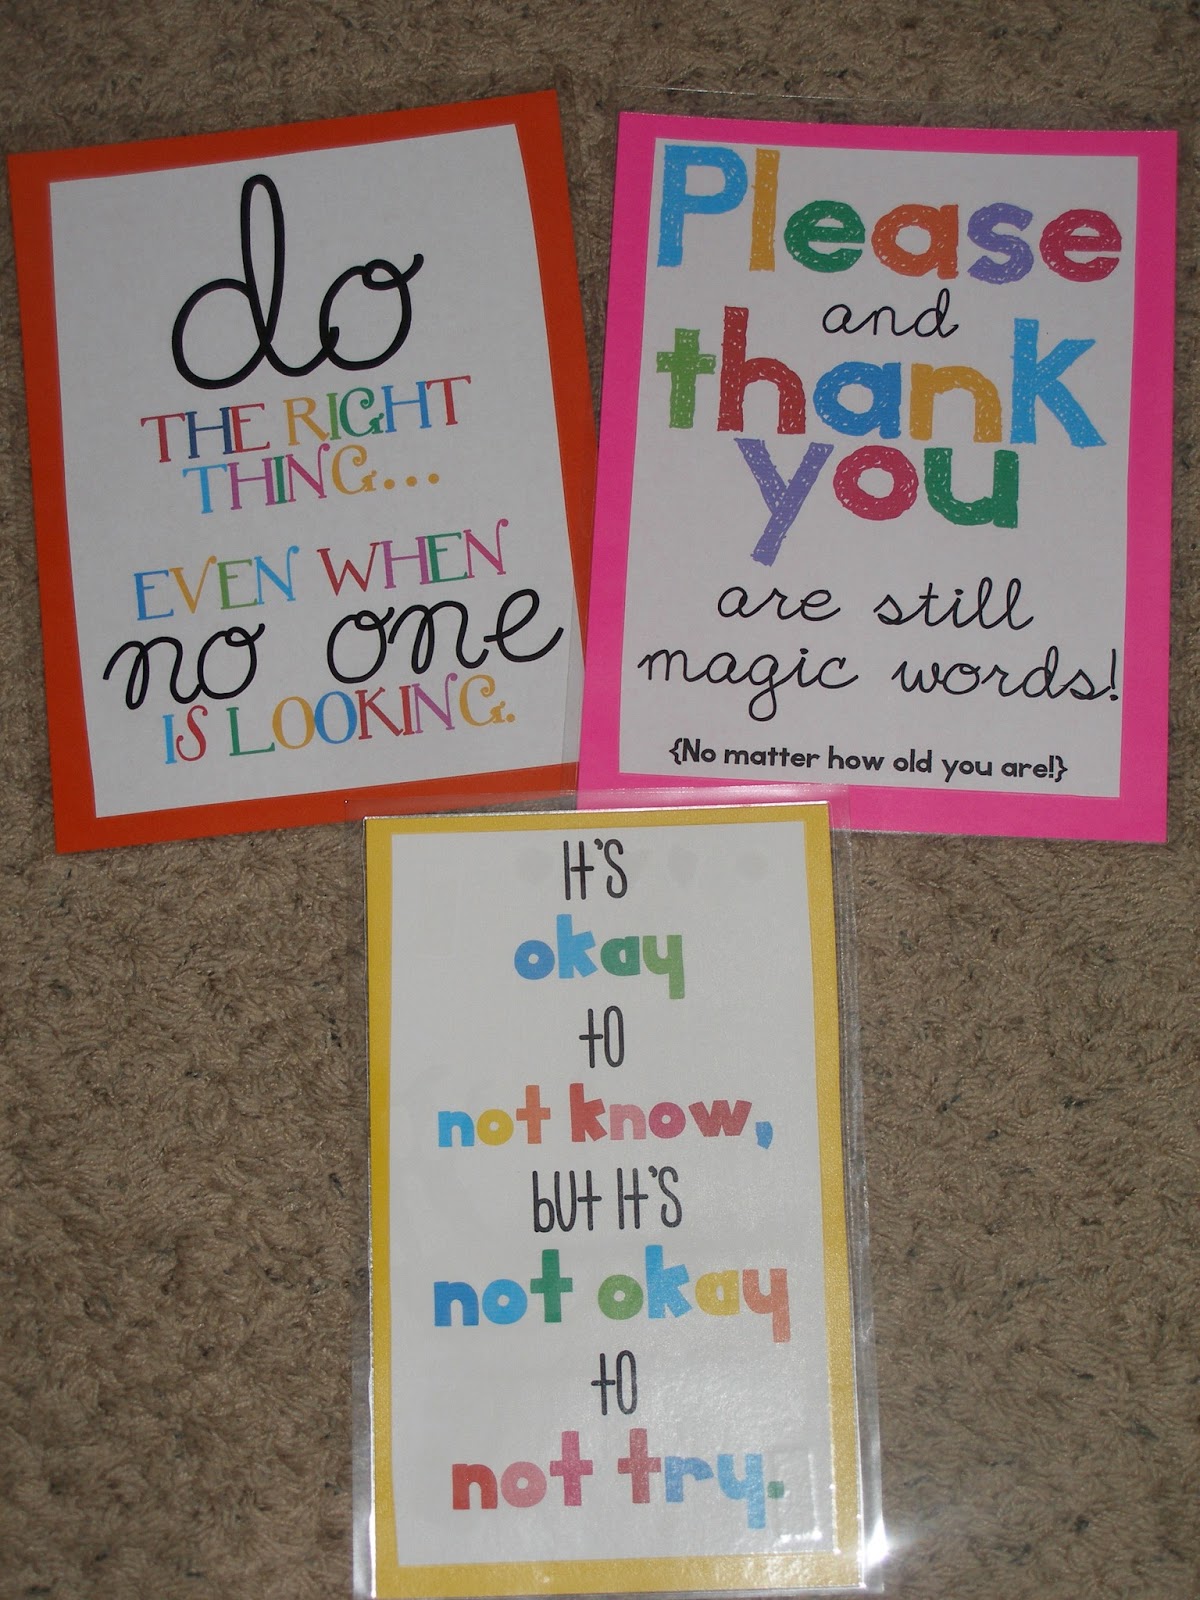 do
THE RIGHT
THING...
EVEN WHEN
no one
IS LOOKING.
Please
and
thank
you
are still
magic words!
{No matter how old you are!}
It's
okay
to
not know,
but it's
not okay
to
not try.